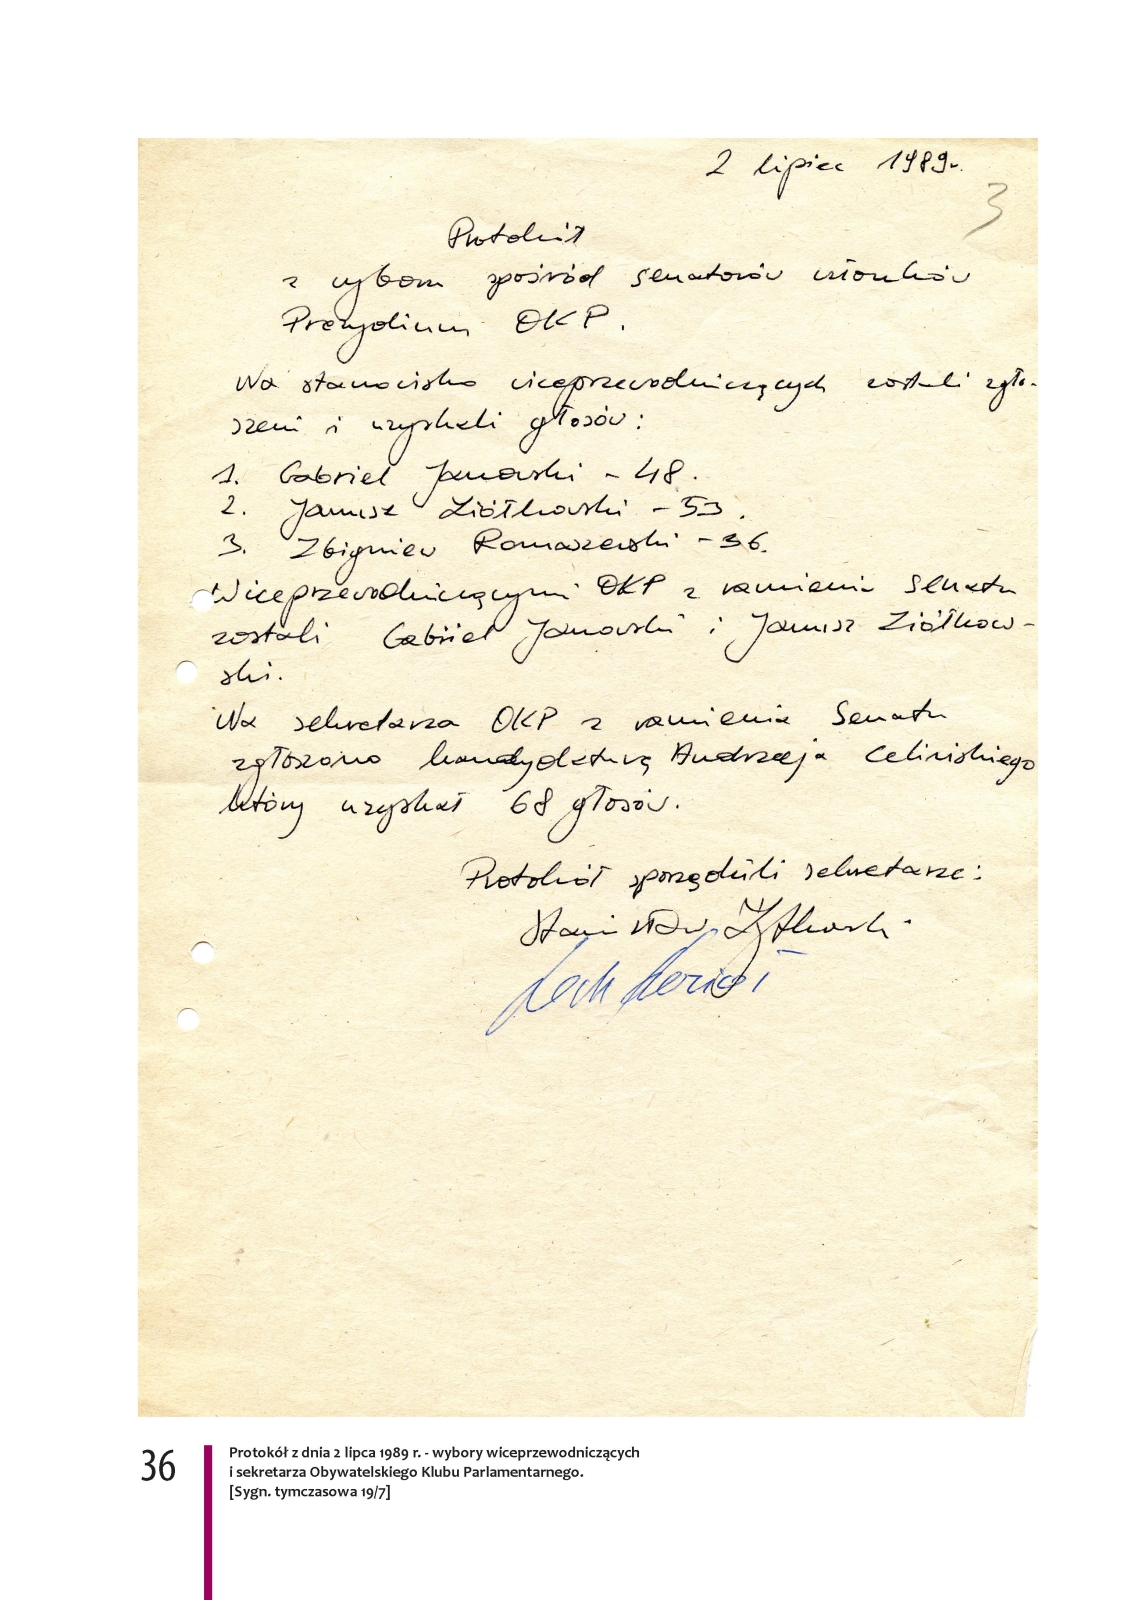 2 lipiec 1989r.
3
Protokół
z wyboru spośród senatorów członków
Prezydium OKP.
Na stanowisko wiceprzewodniczących zostali zgło-
szeni i uzyskali głosów:
1. Gabriel Janowski - 48.
2. Janusz Ziółkowski - 53.
3. Zbigniew Romaszewski - 36.
Wiceprzewodniczącymi OKP z ramienia Senatu
zostali Gabriel Janowski i Janusz Ziółkow-
ski.
Na sekretarza OKP z ramienia Senatu
zgłoszono kandydaturę Andrzeja Celińskiego
który uzyskał 68 głosów.
Protokół sporządzili sekretarze:
Stanisław Żytkowski
Lech Kozioł
36
Protokół z dnia 2 lipca 1989 r. - wybory wiceprzewodniczących
i sekretarza Obywatelskiego Klubu Parlamentarnego.
[Sygn. tymczasowa 19/7]